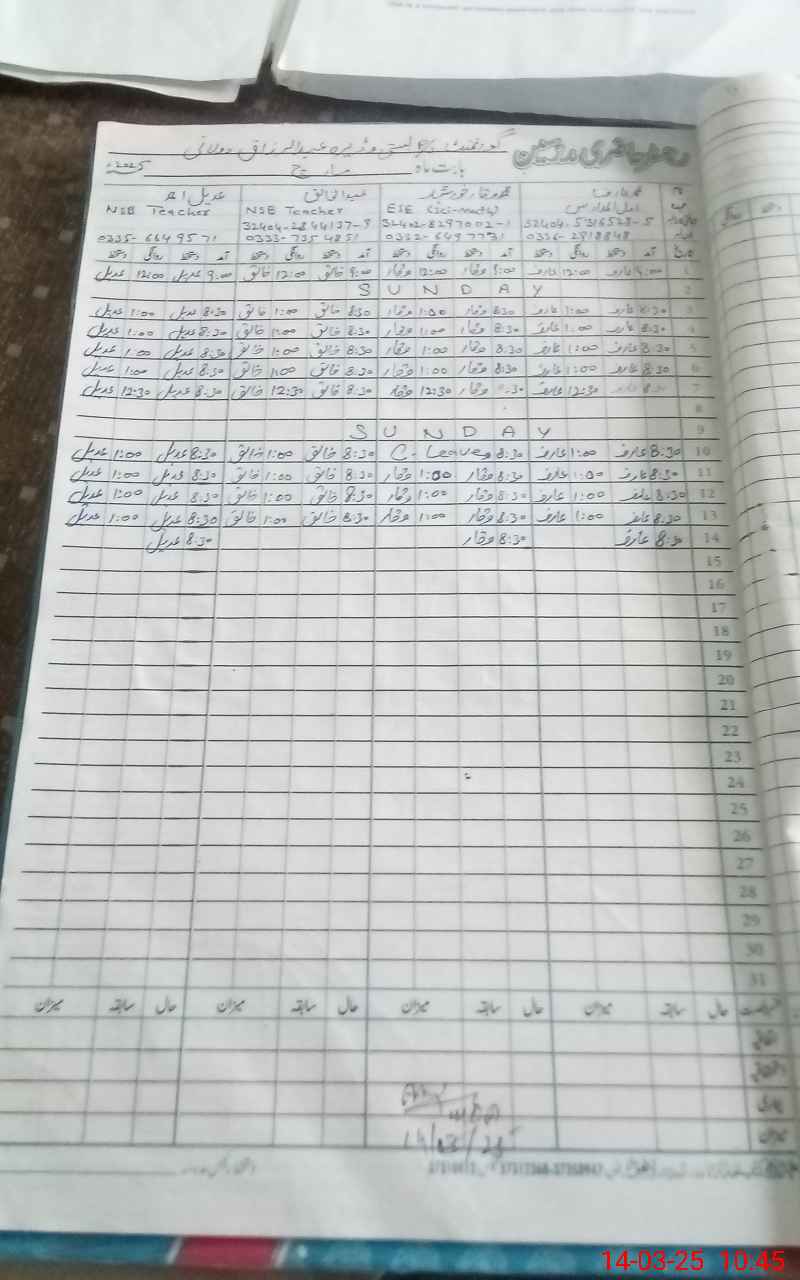 رجسٹر حاضری مدرسین
بابت ماہ مارچ 2025ء
نام محمد عارف عبدالخالق عدیل احمد
ESE (Sci-math) NSB Teacher NSB Teacher
32404-2844137-9
0322-6497731 0333-7354851 0335-6649571
تاریخ آمد دستخط روانگی دستخط آمد دستخط روانگی دستخط آمد دستخط روانگی دستخط آمد دستخط روانگی دستخط
1 9:00 عارف 12:00 عارف 9:00 وقار 12:00 وقار 9:00 خالق 12:00 خالق 9:00 عدیل 12:00 عدیل
2 SUNDAY
3 8:30 عارف 1:00 عارف 8:30 وقار 1:00 وقار 8:30 خالق 1:00 خالق 8:30 عدیل 1:00 عدیل
4 8:30 عارف 1:00 عارف 8:30 وقار 1:00 وقار 8:30 خالق 1:00 خالق 8:30 عدیل 1:00 عدیل
5 8:30 عارف 1:00 عارف 8:30 وقار 1:00 وقار 8:30 خالق 1:00 خالق 8:30 عدیل 1:00 عدیل
6 8:30 عارف 1:00 عارف 8:30 وقار 1:00 وقار 8:30 خالق 1:00 خالق 8:30 عدیل 1:00 عدیل
7 8:30 عارف 12:30 عارف وقار 12:30 وقار 8:30 خالق 12:30 خالق 8:30 عدیل 12:30 عدیل
8
9 SUNDAY
10 8:30 عارف 1:00 عارف 8:30 C-Leave 8:30 خالق 1:00 خالق 8:30 عدیل 1:00 عدیل
11 8:30 عارف 1:00 عارف 8:30 وقار 1:00 وقار 8:30 خالق 1:00 خالق 8:30 عدیل 1:00 عدیل
12 8:30 عارف 1:00 عارف 8:30 وقار 1:00 وقار 8:30 خالق 1:00 خالق 8:30 عدیل 1:00 عدیل
13 8:30 عارف 1:00 عارف 8:30 وقار 1:00 وقار 8:30 خالق 1:00 خالق 8:30 عدیل 1:00 عدیل
14 8:30 عارف 8:30 وقار 8:30 عدیل
15
16
17
18
19
20
21
22
23
24
25
26
27
28
29
30
31
حال سابقہ میزان حال سابقہ میزان حال سابقہ میزان حال سابقہ میزان
اتفاقی
بیماری
میزان
14/03/25
14-03-25 10:45